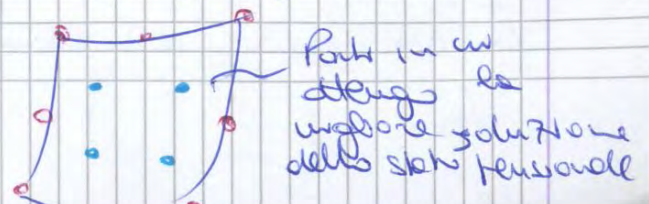 Punti in cui
ottengo la
migliore soluzione
dello stato tensionale